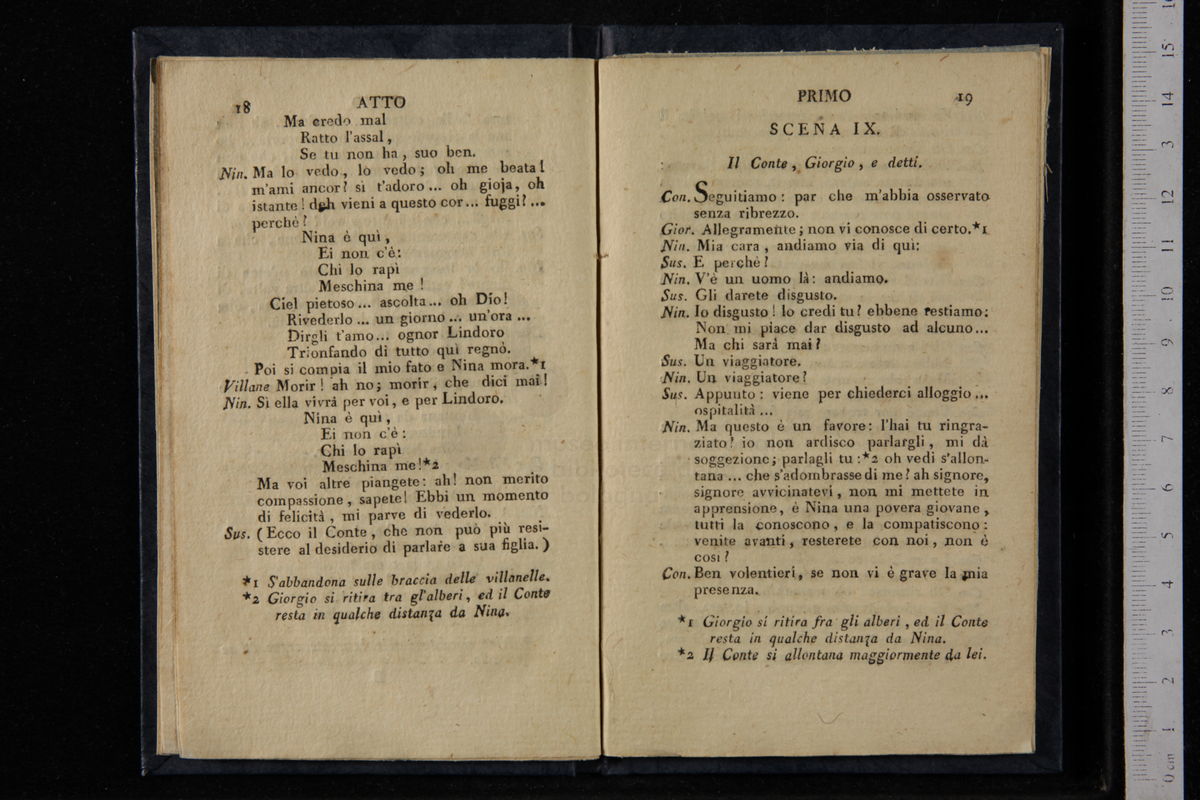 18 ATTO
Ma credo mal
Ratto l'assal,
Se tu non ha, suo ben.
Nin. Ma lo vedo, lo vedo; oh me beata!
m'ami ancor? si t'adoro... oh gioja, oh
istante! deh vieni a questo cor... fuggi?...
perchè?
Nina è quì,
Ei non c'è:
Chi lo rapì
Meschina me!
Ciel pietoso... ascolta... oh Dio!
Rivederlo... un giorno... un'ora...
Dirgli t'amo... ognor Lindoro
Trionfando di tutto quì regnò.
Poi si compia il mio fato e Nina mora.*1
Villane Morir! ah no; morir, che dici mai!
Nin. Sì ella vivrà per voi, e per Lindoro.
Nina è quì,
Ei non c'è:
Chi lo rapì
Meschina me!*2
Ma voi altre piangete: ah! non merito
compassione, sapete! Ebbi un momento
di felicità, mi parve di vederlo.
Sus. (Ecco il Conte, che non può più resi-
stere al desiderio di parlare a sua figlia.)
*1 S'abbandona sulle braccia delle villanelle.
*2 Giorgio si ritira tra gl'alberi, ed il Conte
resta in qualche distanza da Nina.
PRIMO 19
SCENA IX.
Il Conte, Giorgio, e detti.
Con. Seguitiamo: par che m'abbia osservato
senza ribrezzo.
Gior. Allegramente; non vi conosce di certo.*1
Nin. Mia cara, andiamo via di quì:
Sus. E perchè?
Nin. V'è un uomo là: andiamo.
Sus. Gli darete disgusto.
Nin. Io disgusto! lo credi tu? ebbene restiamo:
Non mi piace dar disgusto ad alcuno...
Ma chi sarà mai?
Sus. Un viaggiatore.
Nin. Un viaggiatore?
Sus. Appunto: viene per chiederci alloggio...
ospitalità...
Nin. Ma questo è un favore: l'hai tu ringra-
ziato? io non ardisco parlargli, mi dà
soggezione; parlagli tu:*2 oh vedi s'allon-
tana... che s'adombrasse di me? ah signore,
signore avvicinatevi, non mi mettete in
apprensione, è Nina una povera giovane,
tutti la conoscono, e la compatiscono:
venite avanti, resterete con noi, non è
così?
Con. Ben volentieri, se non vi è grave la mia
presenza.
*1 Giorgio si ritira fra gli alberi, ed il Conte
resta in qualche distanza da Nina.
*2 Il Conte si allontana maggiormente da lei.
0 cm 1 2 3 4 5 6 7 8 9 10 11 12 13 14 15 16